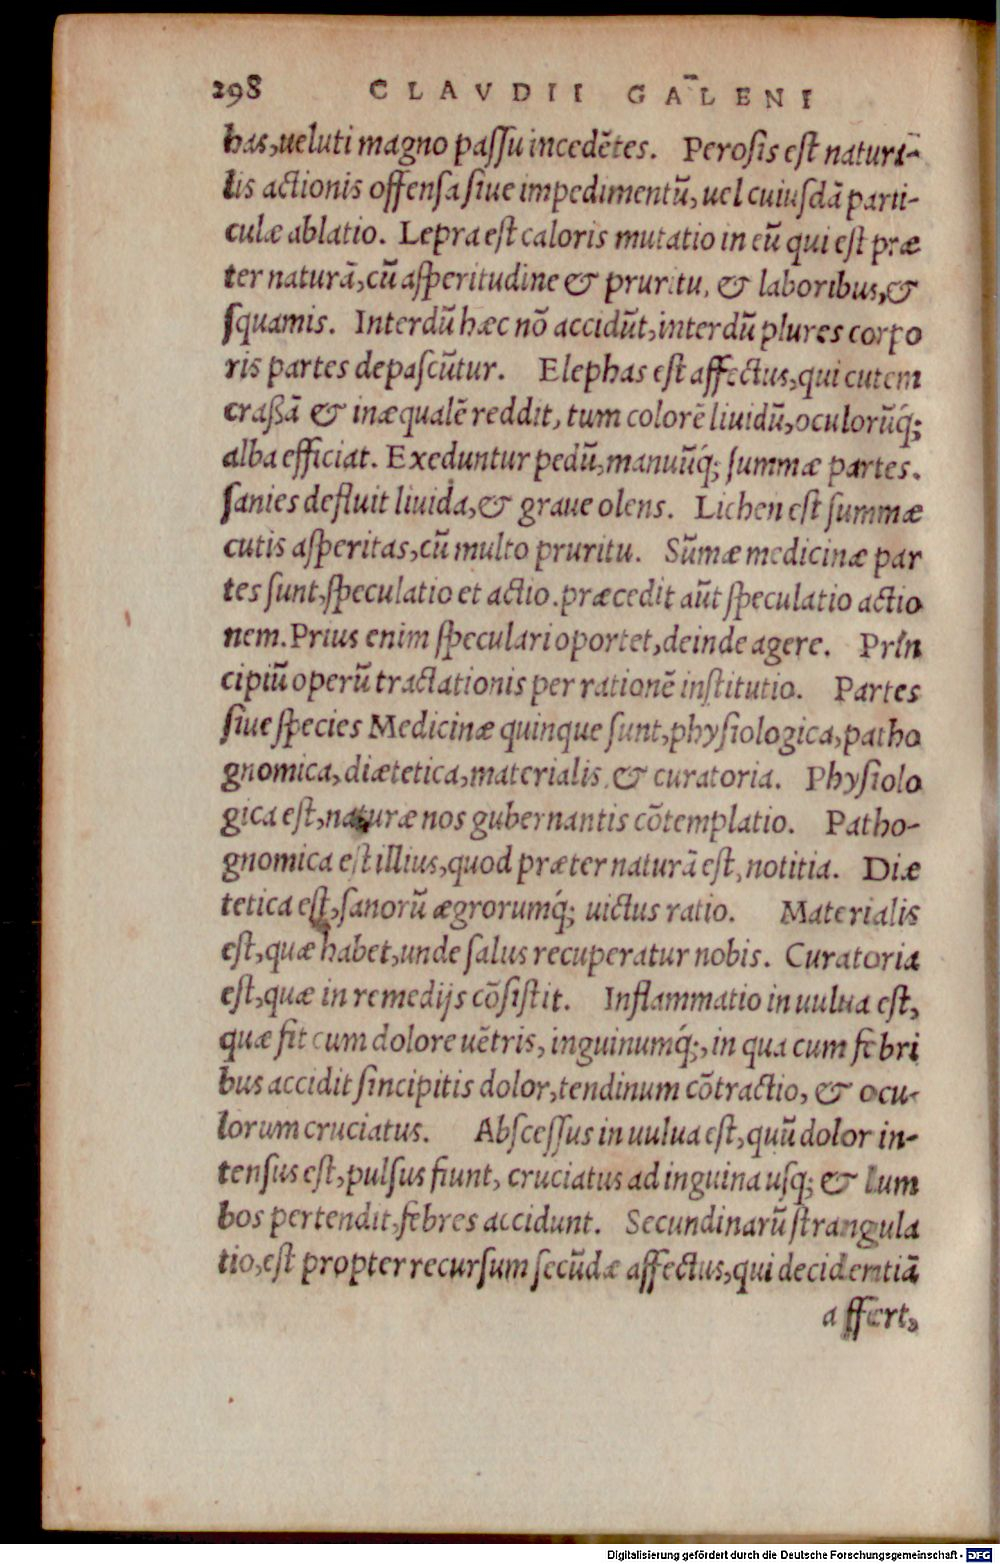 298 CLAVDII GALENI
has,ueluti magno passu incedētes. Perosis est natura-
lis actionis offensa siue impedimentū, uel cuiusdā parti-
culæ ablatio. Lepra est caloris mutatio in eū qui est præ
ter naturā,cū asperitudine & pruritu, & laboribus,&
squamis. Interdū hæc nō accidūt,interdū plures corpo
ris partes depascūtur. Elephas est affectus,qui cutem
craßā & inæqualē reddit, tum colorē liuidū,oculorūq́;
alba efficiat. Exeduntur pedū,manuūq́; summæ partes.
sanies defluit liuida,& graue olens. Lichen est summæ
cutis asperitas,cū multo pruritu. Sūmæ medicinæ par
tes sunt,speculatio et actio.præcedit aūt speculatio actio
nem.Prius enim speculari oportet,deinde agere. Prin
cipiū operū tractationis per rationē institutio. Partes
siue species Medicinæ quinque sunt,physiologica,patho
gnomica,diætetica,materialis,& curatoria. Physiolo
gica est,naturæ nos gubernantis cōtemplatio. Patho-
gnomica est illius,quod præter naturā est,notitia. Diæ
tetica est,sanorū ægrorumq́; uictus ratio. Materialis
est,quæ habet,unde salus recuperatur nobis. Curatoria
est,quæ in remedijs cōsistit. Inflammatio in uulua est,
quæ fit cum dolore uētris, inguinumq́;,in qua cum febri
bus accidit sincipitis dolor,tendinum cōtractio, & ocu-
lorum cruciatus. Abscessus in uulua est,quū dolor in-
tensus est,pulsus fiunt, cruciatus ad inguina usq; & lum
bos pertendit,febres accidunt. Secundinarū strangula
tio,est propter recursum secūdæ affectus,qui decidentiā
affert,
Digitalisierung gefördert durch die Deutsche Forschungsgemeinschaft - DFG